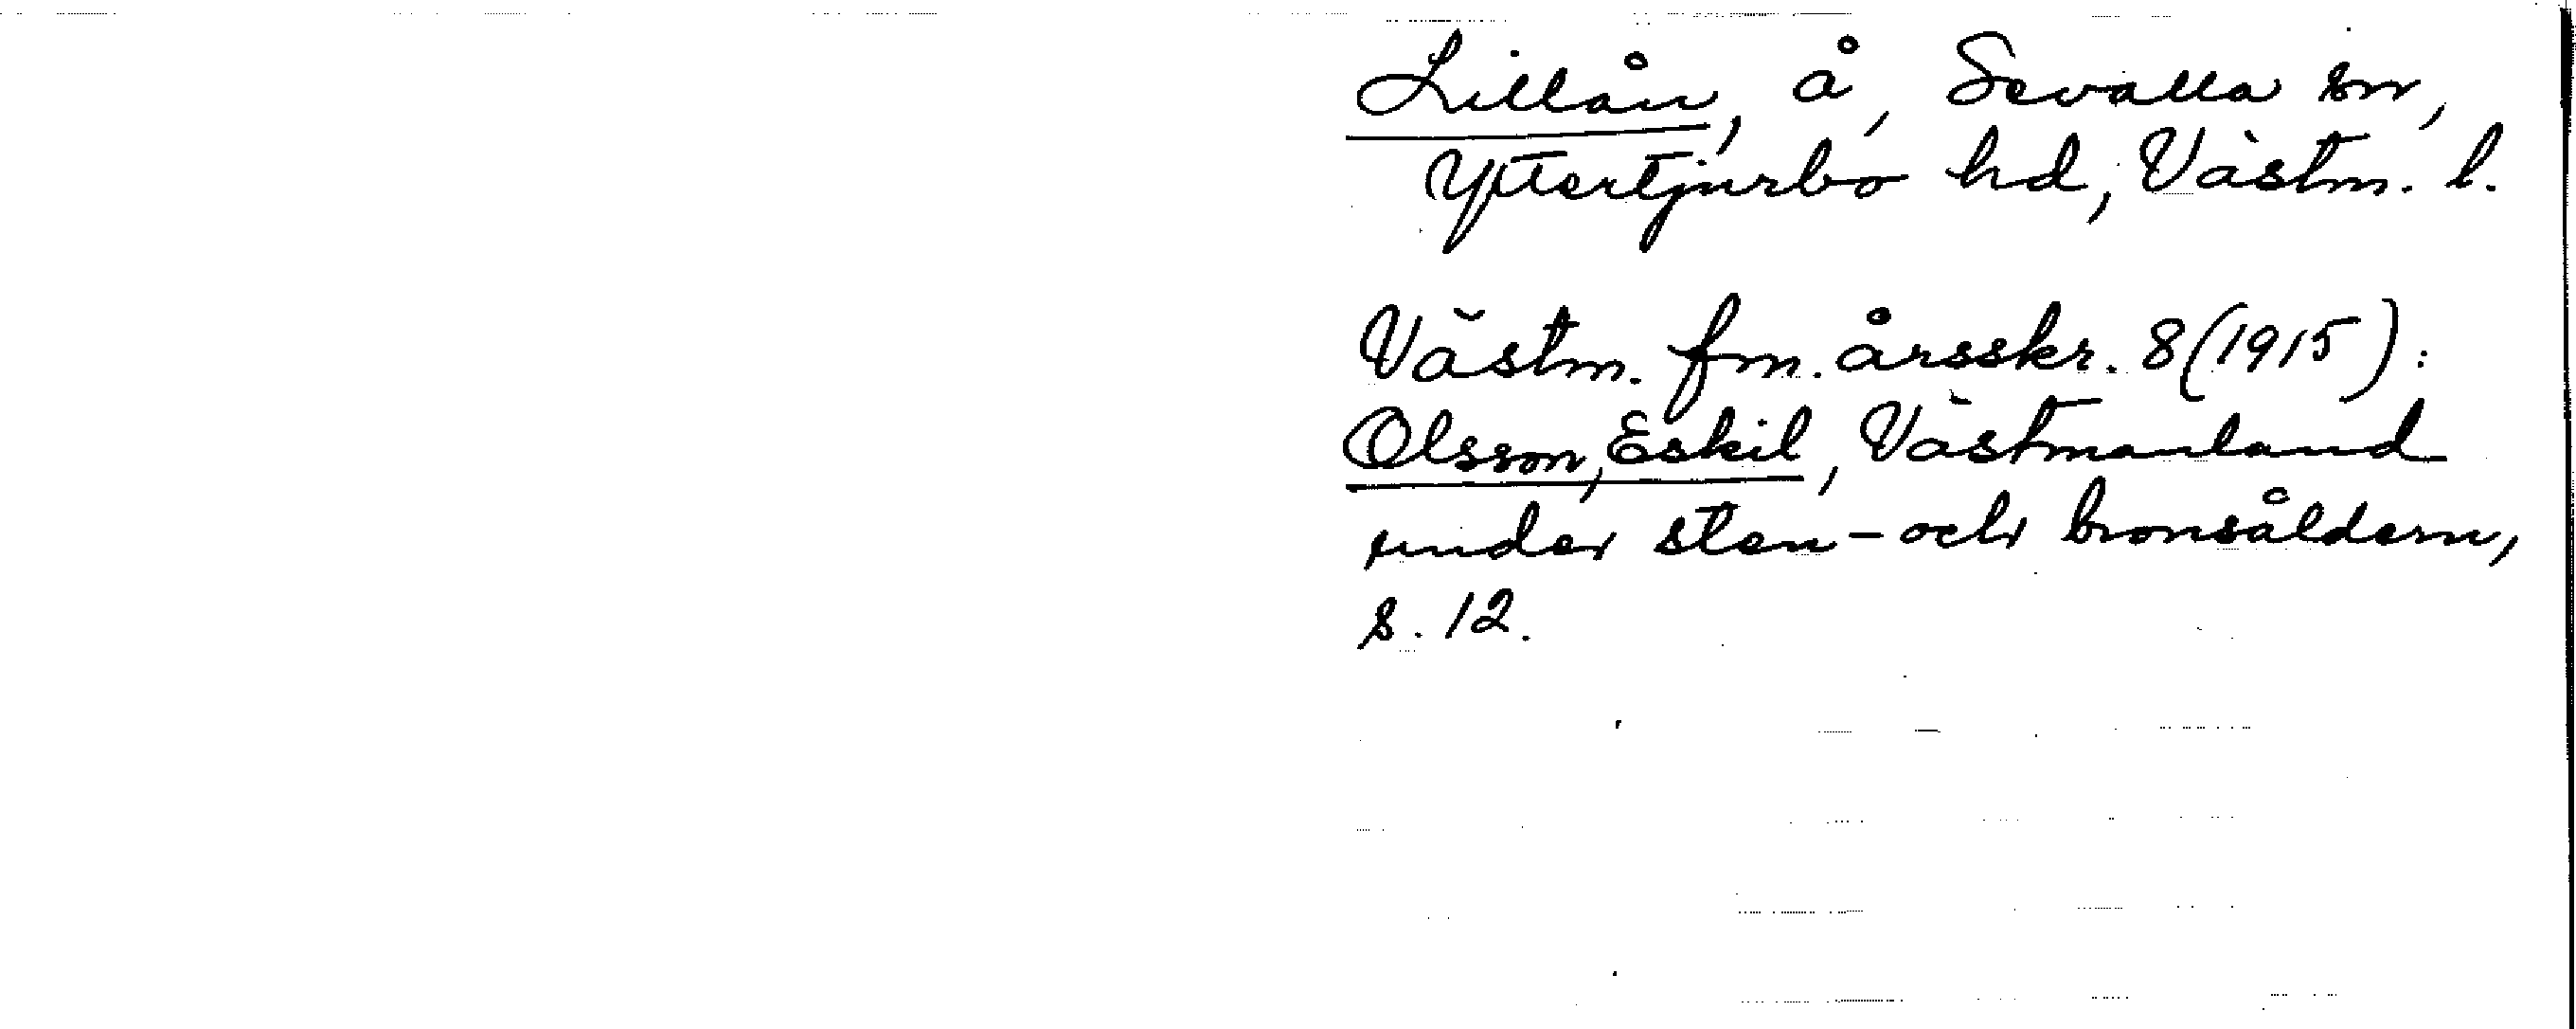 Lillån, å, Sevalla sn,
Yttertjurbo hd, Västm. l.
Västm. fm. årsskr. 8 (1915):
Olsson, Eskil, Västmanland
under sten- och bronsåldern,
s. 12.